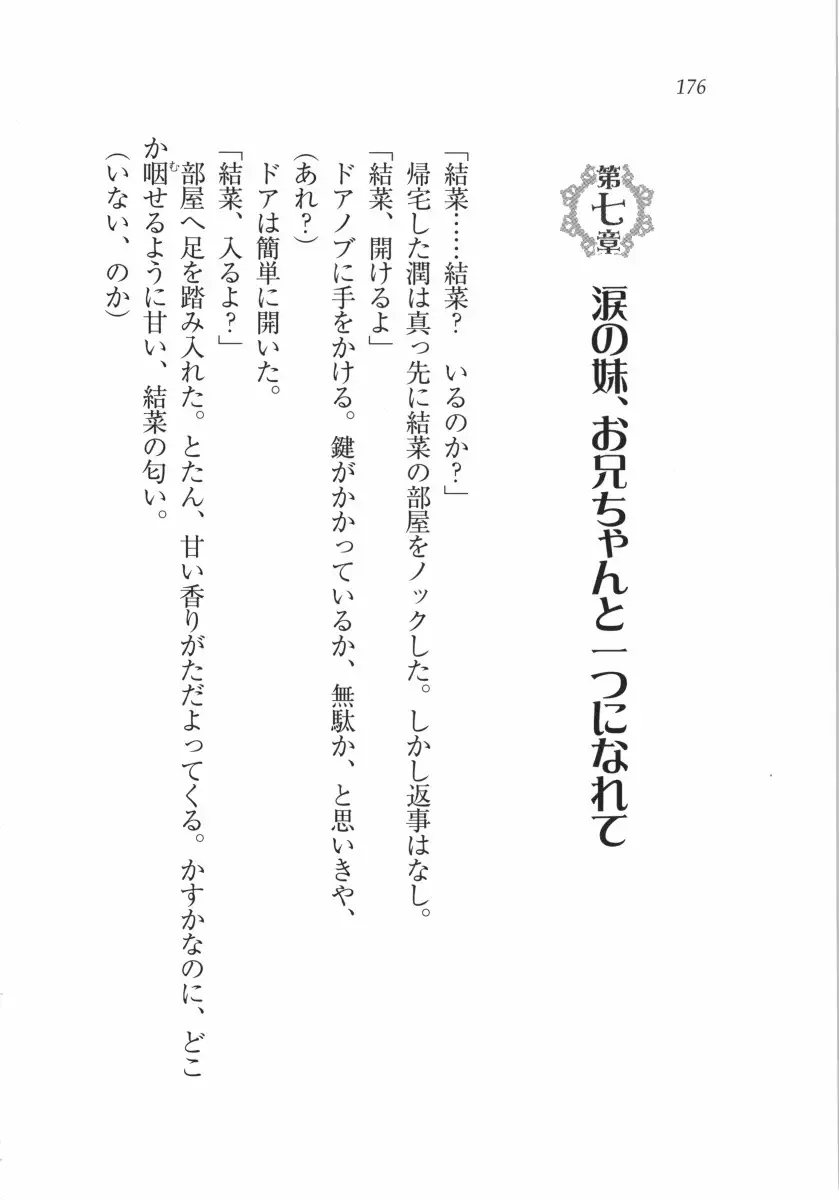 176
第七章
涙の妹、お兄ちゃんと一つになれて
「結菜……結菜?　いるのか?」
帰宅した潤は真っ先に結菜の部屋をノックした。しかし返事はなし。
「結菜、開けるよ」
ドアノブに手をかける。鍵がかかっているか、無駄か、と思いきや、
(あれ?)
ドアは簡単に開いた。
「結菜、入るよ?」
部屋へ足を踏み入れた。とたん、甘い香りがただよってくる。かすかなのに、どこ
か咽せるように甘い、結菜の匂い。
(いない、のか)